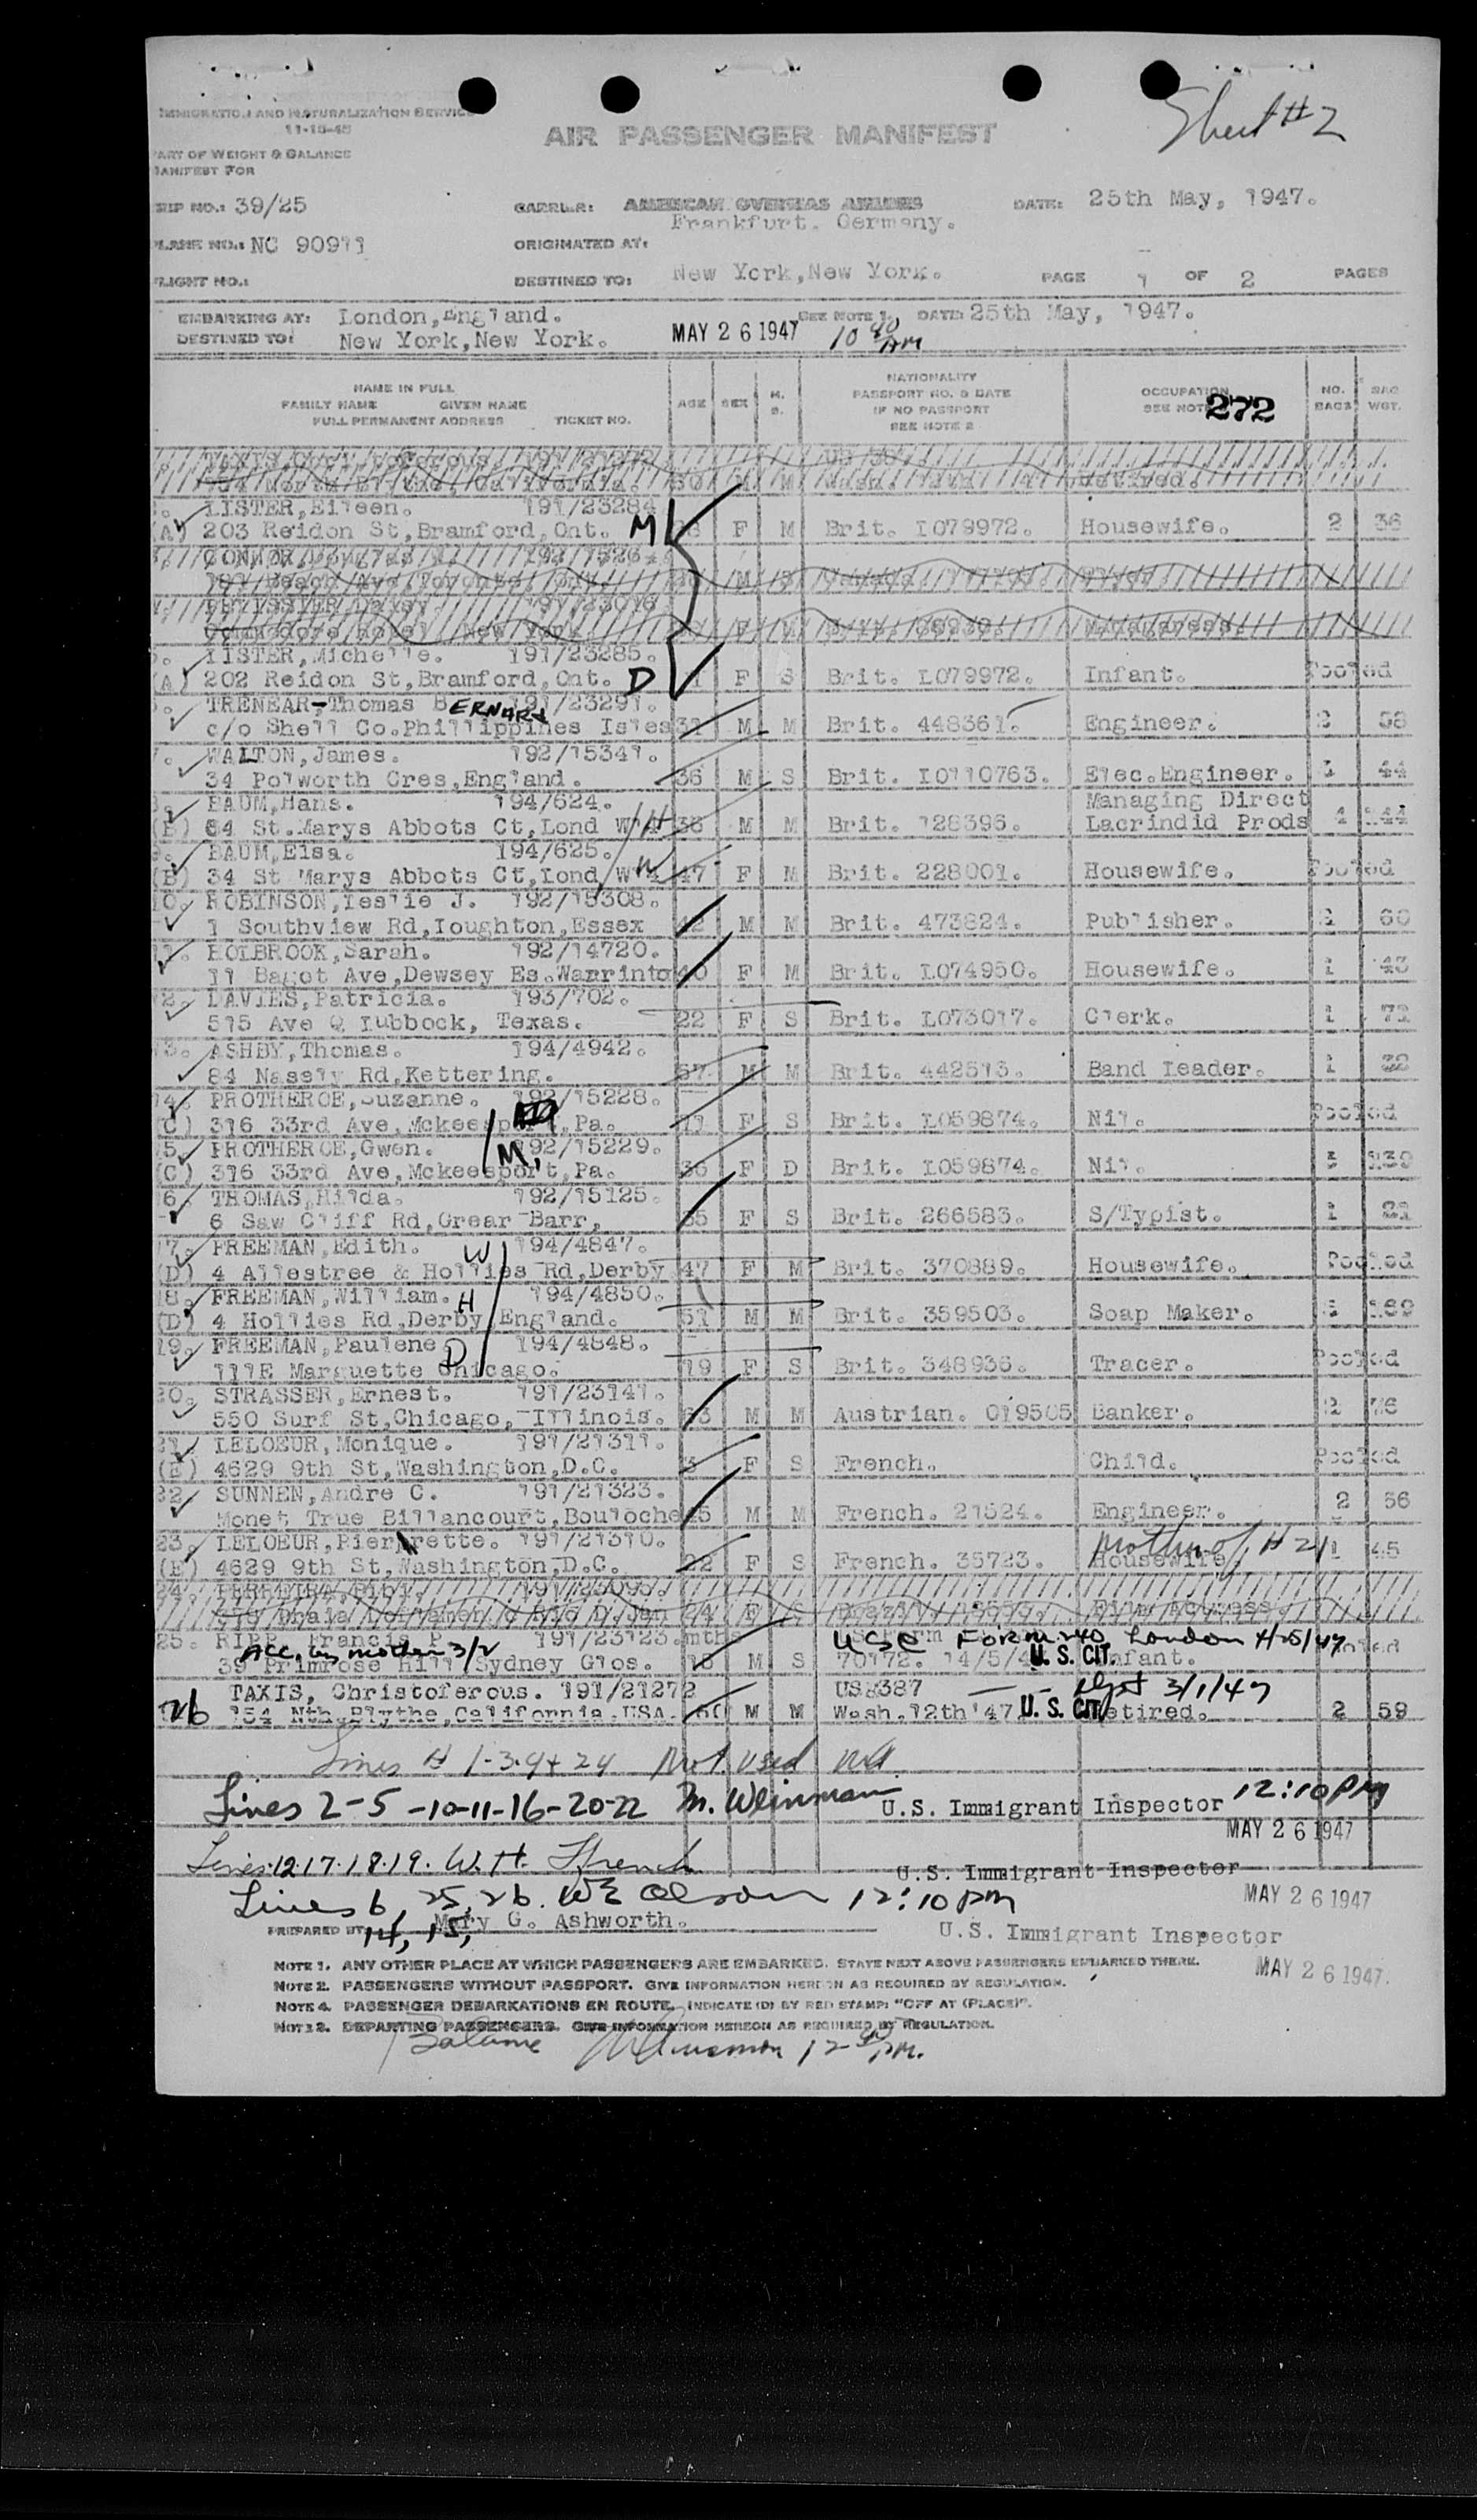 Sheet #2
IMMIGRATION AND NATURALIZATION SERVICE
11-10-45
AIR PASSENGER MANIFEST
PART OF WEIGHT & BALANCE
MANIFEST FOR
TRIP NO.: 39/25 CARRIER: AMERICAN OVERSEAS AIRLINES DATE: 25th May, 1947.
Frankfurt. Germany.
PLANE NO.: NC 90911 ORIGINATED AT:
FLIGHT NO.: DESTINED TO: New York,New York. PAGE 1 OF 2 PAGES
EMBARKING AT: London,England. SEE NOTE 1. DATE: 25th May, 1947.
DESTINED TO: New York,New York. MAY 26 1947 AM
NAME IN FULL NATIONALITY
FAMILY NAME GIVEN NAME AGE SEX M. S. PASSPORT NO. & DATE OCCUPATION NO. BAGS BAG WGT.
FULL PERMANENT ADDRESS TICKET NO. IF NO PASSPORT SEE NOTE 272
SEE NOTE 2
LISTER,Eileen. 191/23284
(A) 203 Reidon St,Bramford,Ont. M F M Brit. L079972. Housewife. 2 36
LISTER,Michelle. 191/23285.
(A) 202 Reidon St,Bramford,Ont. D F S Brit. L079972. Infant. Pooled
TRENEAR-Thomas BERNARD 191/23291.
c/o Shell Co.Phillippines Isles 31 M M Brit. 448361. Engineer. 38
7. WALTON,James. 192/15341.
34 Polworth Cres,England. 36 M S Brit. L0110763. Elec.Engineer. 44
BAUM,Hans. 194/624. Managing Direct
(B) 64 St.Marys Abbots Ct,Lond H 36 M M Brit. 128396. Lacrindid Prods
BAUM,Elsa. 194/625.
(B) 34 St Marys Abbots Ct,Lond W 47 F M Brit. 228001. Housewife. Pooled
10. ROBINSON,Leslie J. 192/15308.
1 Southview Rd,Loughton,Essex 42 M M Brit. 473824. Publisher. 60
HOLBROOK,Sarah. 192/14720.
11 Bagot Ave,Dewsey Es.Warrinto 40 F M Brit. L074950. Housewife. 1 43
12. DAVIES,Patricia. 193/702.
515 Ave Q Lubbock, Texas. 22 F S Brit. L073017. Clerk. 1 71
13. ASHBY,Thomas. 194/4942.
84 Nasely Rd,Kettering. 37 M M Brit. 442513. Band Leader. 1
14. PROTHEROE,Suzanne. 192/15228.
(C) 316 33rd Ave,Mckeesport,Pa. 11 F S Brit. L059874. Nil. Pooled
15. PROTHEROE,Gwen. M. 192/15229.
(C) 316 33rd Ave,Mckeesport,Pa. 36 F D Brit. L059874. Nil. 3
16. THOMAS,Hilda. 192/15125.
6 Saw Cliff Rd,Grear Barr, 35 F S Brit. 266583. S/Typist. 1
17. FREEMAN,Edith. W 194/4847.
(D) 4 Allestree & Hollies Rd,Derby 47 F M Brit. 370889. Housewife. Pooled
18. FREEMAN,William. H 194/4850.
(D) 4 Hollies Rd,Derby,England. 51 M M Brit. 359503. Soap Maker. 169
19. FREEMAN,Paulene D 194/4848.
111E Marquette Chicago. 19 F S Brit. 348936. Tracer. Pooled
20. STRASSER,Ernest. 191/23141.
550 Surf St,Chicago,-Illinois. 63 M M Austrian. 019505 Banker. 2 76
21. LELOEUR,Monique. 191/21311.
(E) 4629 9th St,Washington,D.C. 3 F S French. Child. Pooled
22. SUNNEN,Andre C. 191/21323.
Monet True Billancourt,Bouloche M M French. 21524. Engineer. 2 36
23. LELOEUR,Pierrette. 191/21310. mother of #21
(E) 4629 9th St,Washington,D.C. 22 F S French. 35723. Housewife. 1 45
25. RIPP, Francis P. 191/23123.mths USC FORM 240 London 4/25/47
Acc. by mother 3/2
39 Primrose Hill Sydney Glos. 18 M S 70172. 14/5/4 U. S. CIT. Infant. Pooled
TAXIS, Christoferous. 191/21272 US 387 Dept 3/1/47
26 154 Nth.Blythe,California.USA. 60 M M Wash.12th'47 U. S. CIT. Retired. 2 59
Lines # 1-3-4+24 Not used
Lines 2-5-10-11-16-20-22 M. Weinman U.S. Immigrant Inspector 12:10 PM
MAY 26 1947
Lines 12.17.18.19. W.H. French U.S. Immigrant Inspector
Lines 6, 25, 26. WE Olson 12:10 pm MAY 26 1947
14, 15,
PREPARED BY Mary G. Ashworth. U.S. Immigrant Inspector
NOTE 1. ANY OTHER PLACE AT WHICH PASSENGERS ARE EMBARKED. STATE NEXT ABOVE PASSENGERS EMBARKED THERE. MAY 26 1947.
NOTE 2. PASSENGERS WITHOUT PASSPORT. GIVE INFORMATION HEREON AS REQUIRED BY REGULATION.
NOTE 4. PASSENGER DEBARKATIONS EN ROUTE. INDICATE (D) BY RED STAMP: "OFF AT (PLACE)".
NOTE 3. DEPARTING PASSENGERS. GIVE INFORMATION HEREON AS REQUIRED BY REGULATION.
Balance PM.